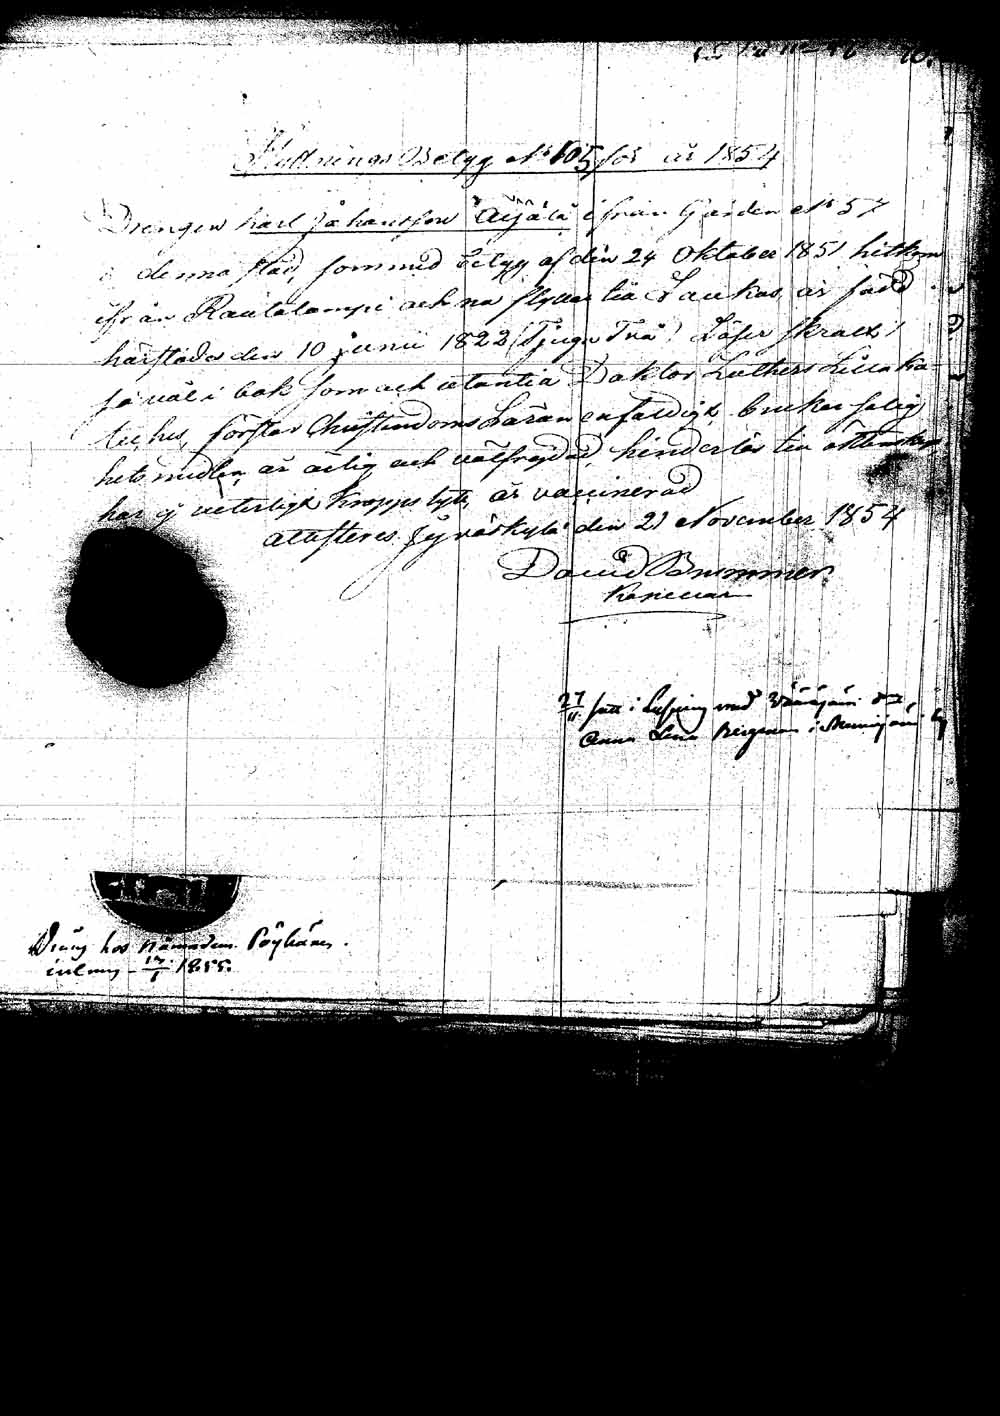 Flyttnings Betyg No 105 för år 1854
Drengen Karl Johansson Äijälä ifrån Gården No 57
i denna stad, som med Betyg af den 24 Oktober 1851 hitkom
ifrån Rautalampi och nu flyttar till Laukas, är född
härstädes den 10 Junii 1822 (Tjugu Två) Läser svenskt
så väl i bok som och utantill Doktor Luthers Lilla Ka-
teches, förstår Christendoms Läran enfaldigt, brukar salig
hets medlen, är ärlig och välfrejdad, hinderlös till äktenskap,
har ej veterligt kroppslyte, är vaccinerad
attesteras. Jyväskylä den 21 November 1854
David Brummer
27/11 satt i Lysning med
Anna Lena i
Dräng hos Nämndem. Pöyhönen.
1855.